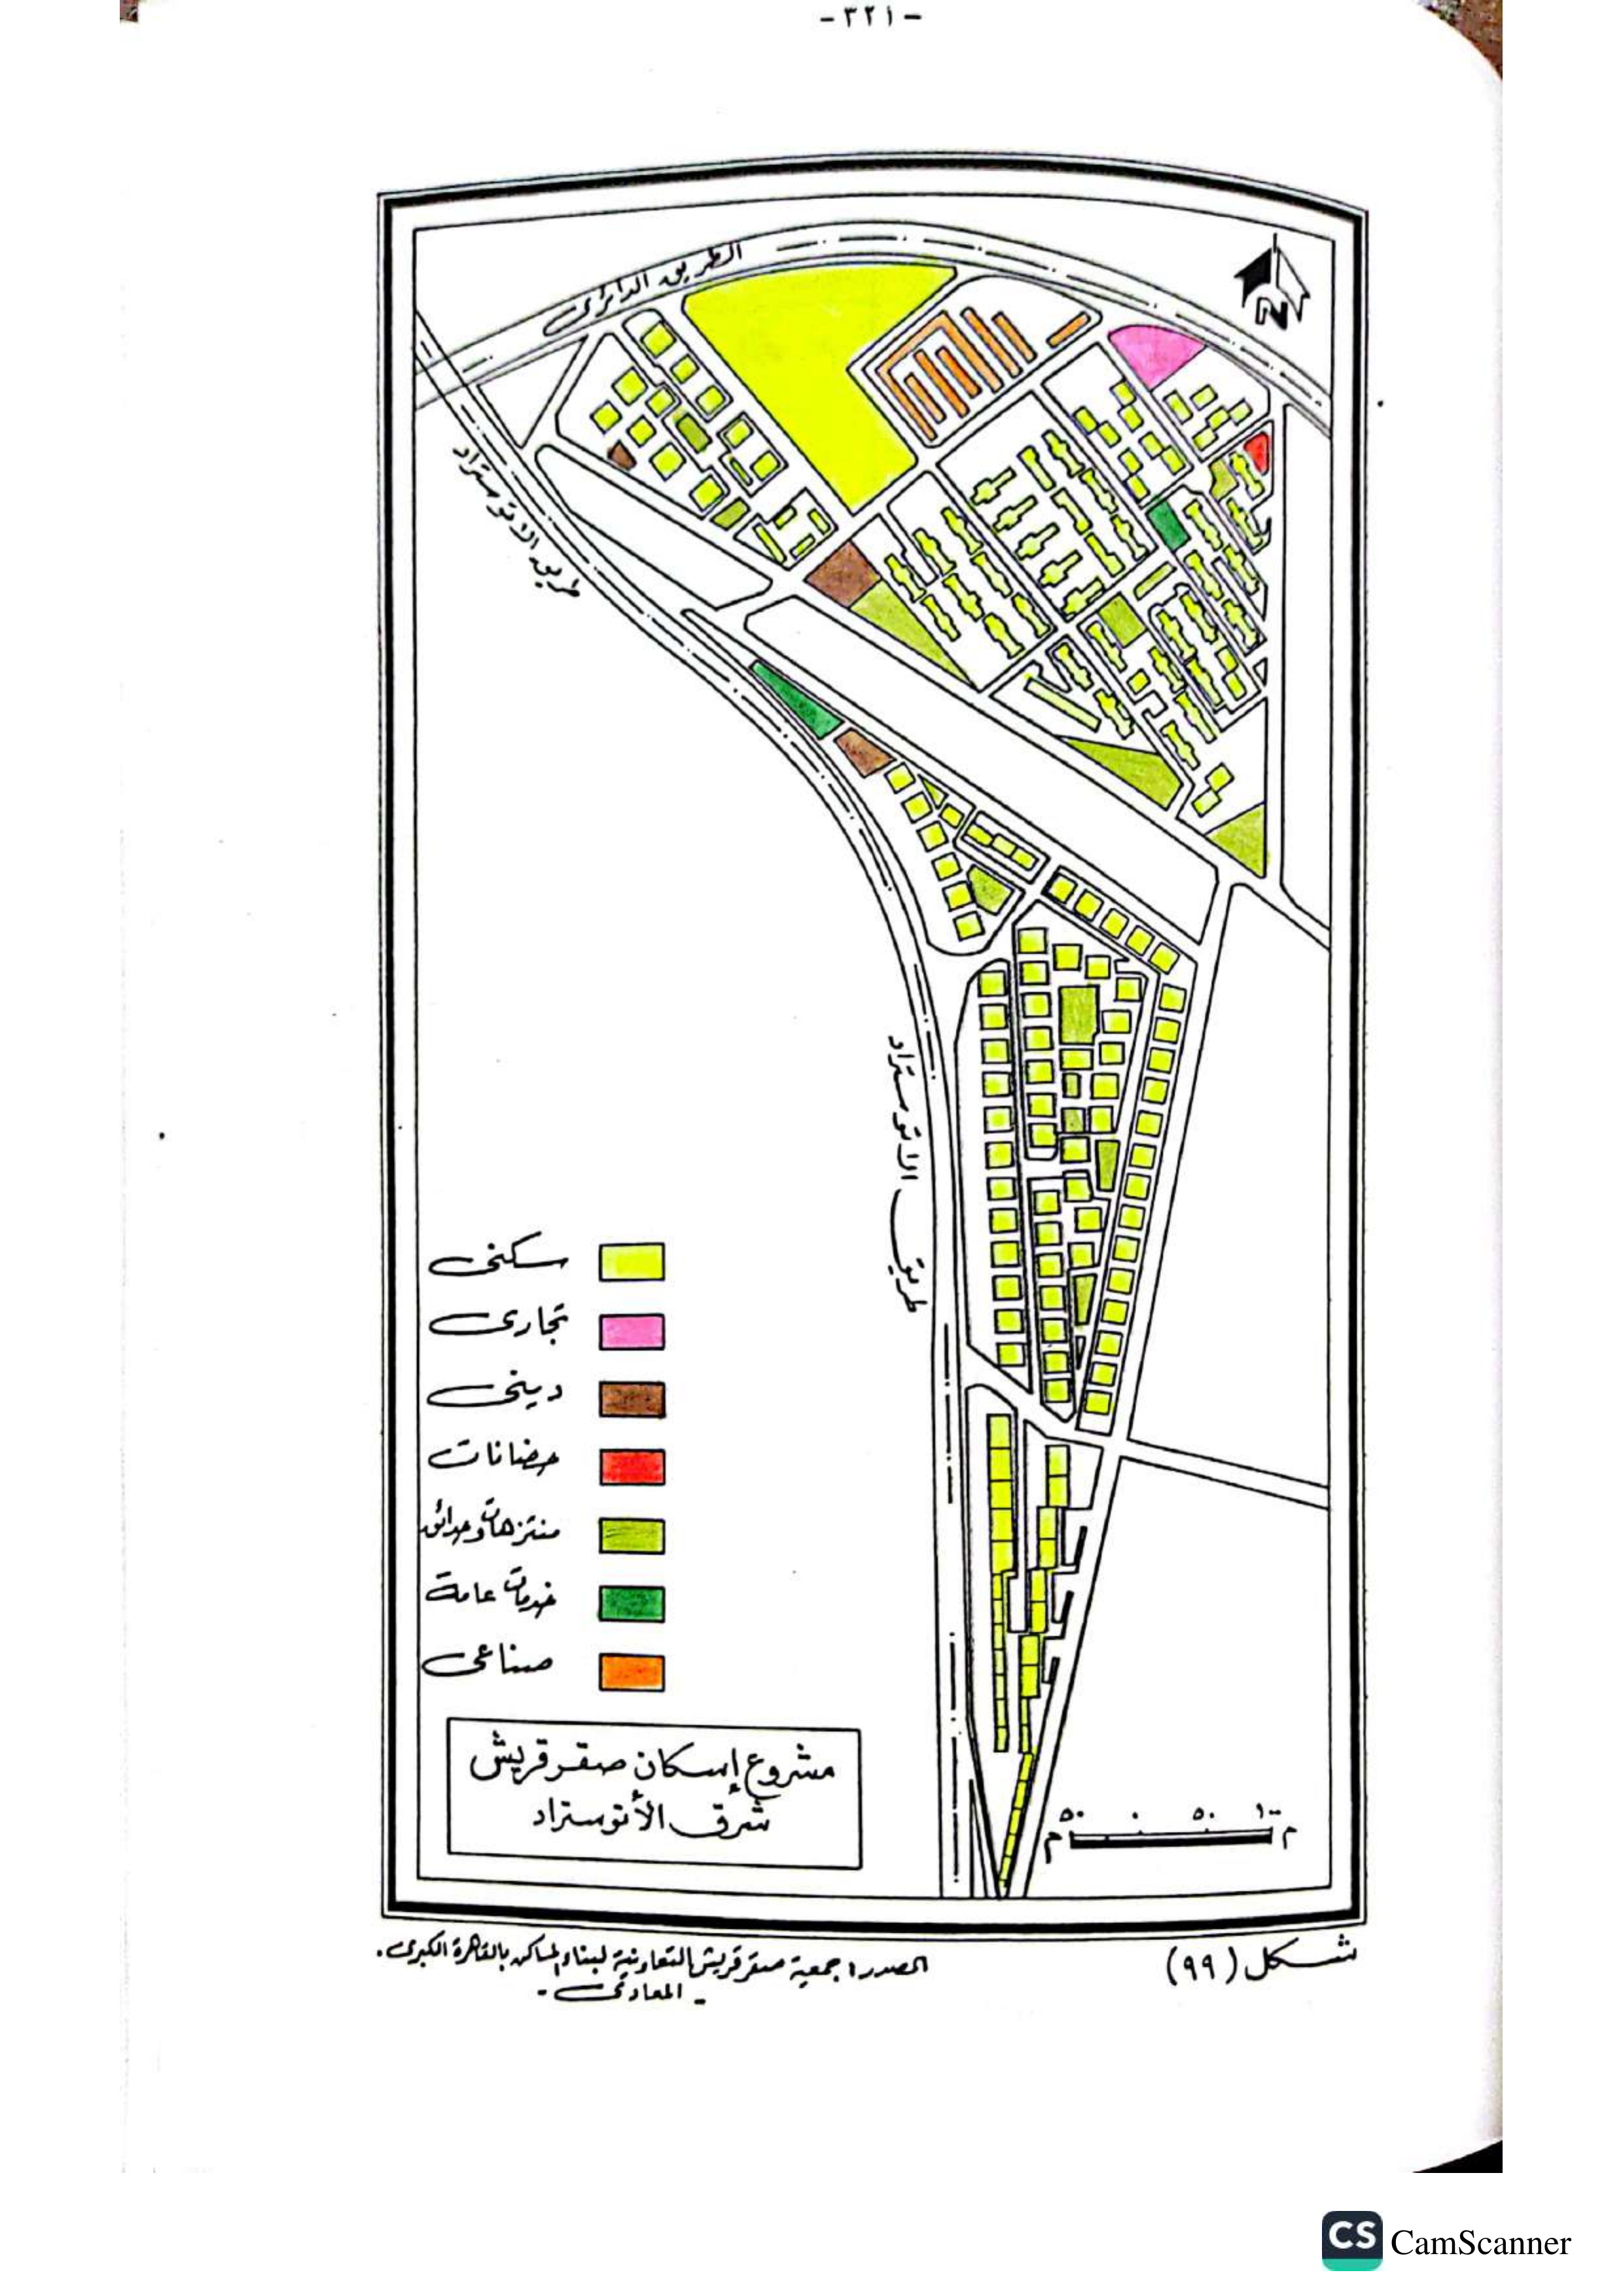 -٣٢١-
الطريق الدائرى
طريق الاتوستراد
طريق الاتوستراد
سكنى
تجارى
دينى
حضانات
منتزهات وحدائق
خدمات عامة
صناعى
مشروع إسكان صقر قريش
شرق الأتوستراد
٥٠ ٠ ٥٠ ١٠٠
م م
شكل (٩٩)
المصدر: جمعية صقر قريش التعاونية لبناء المساكن بالقاهرة الكبرى.
- المعادى -
CS CamScanner